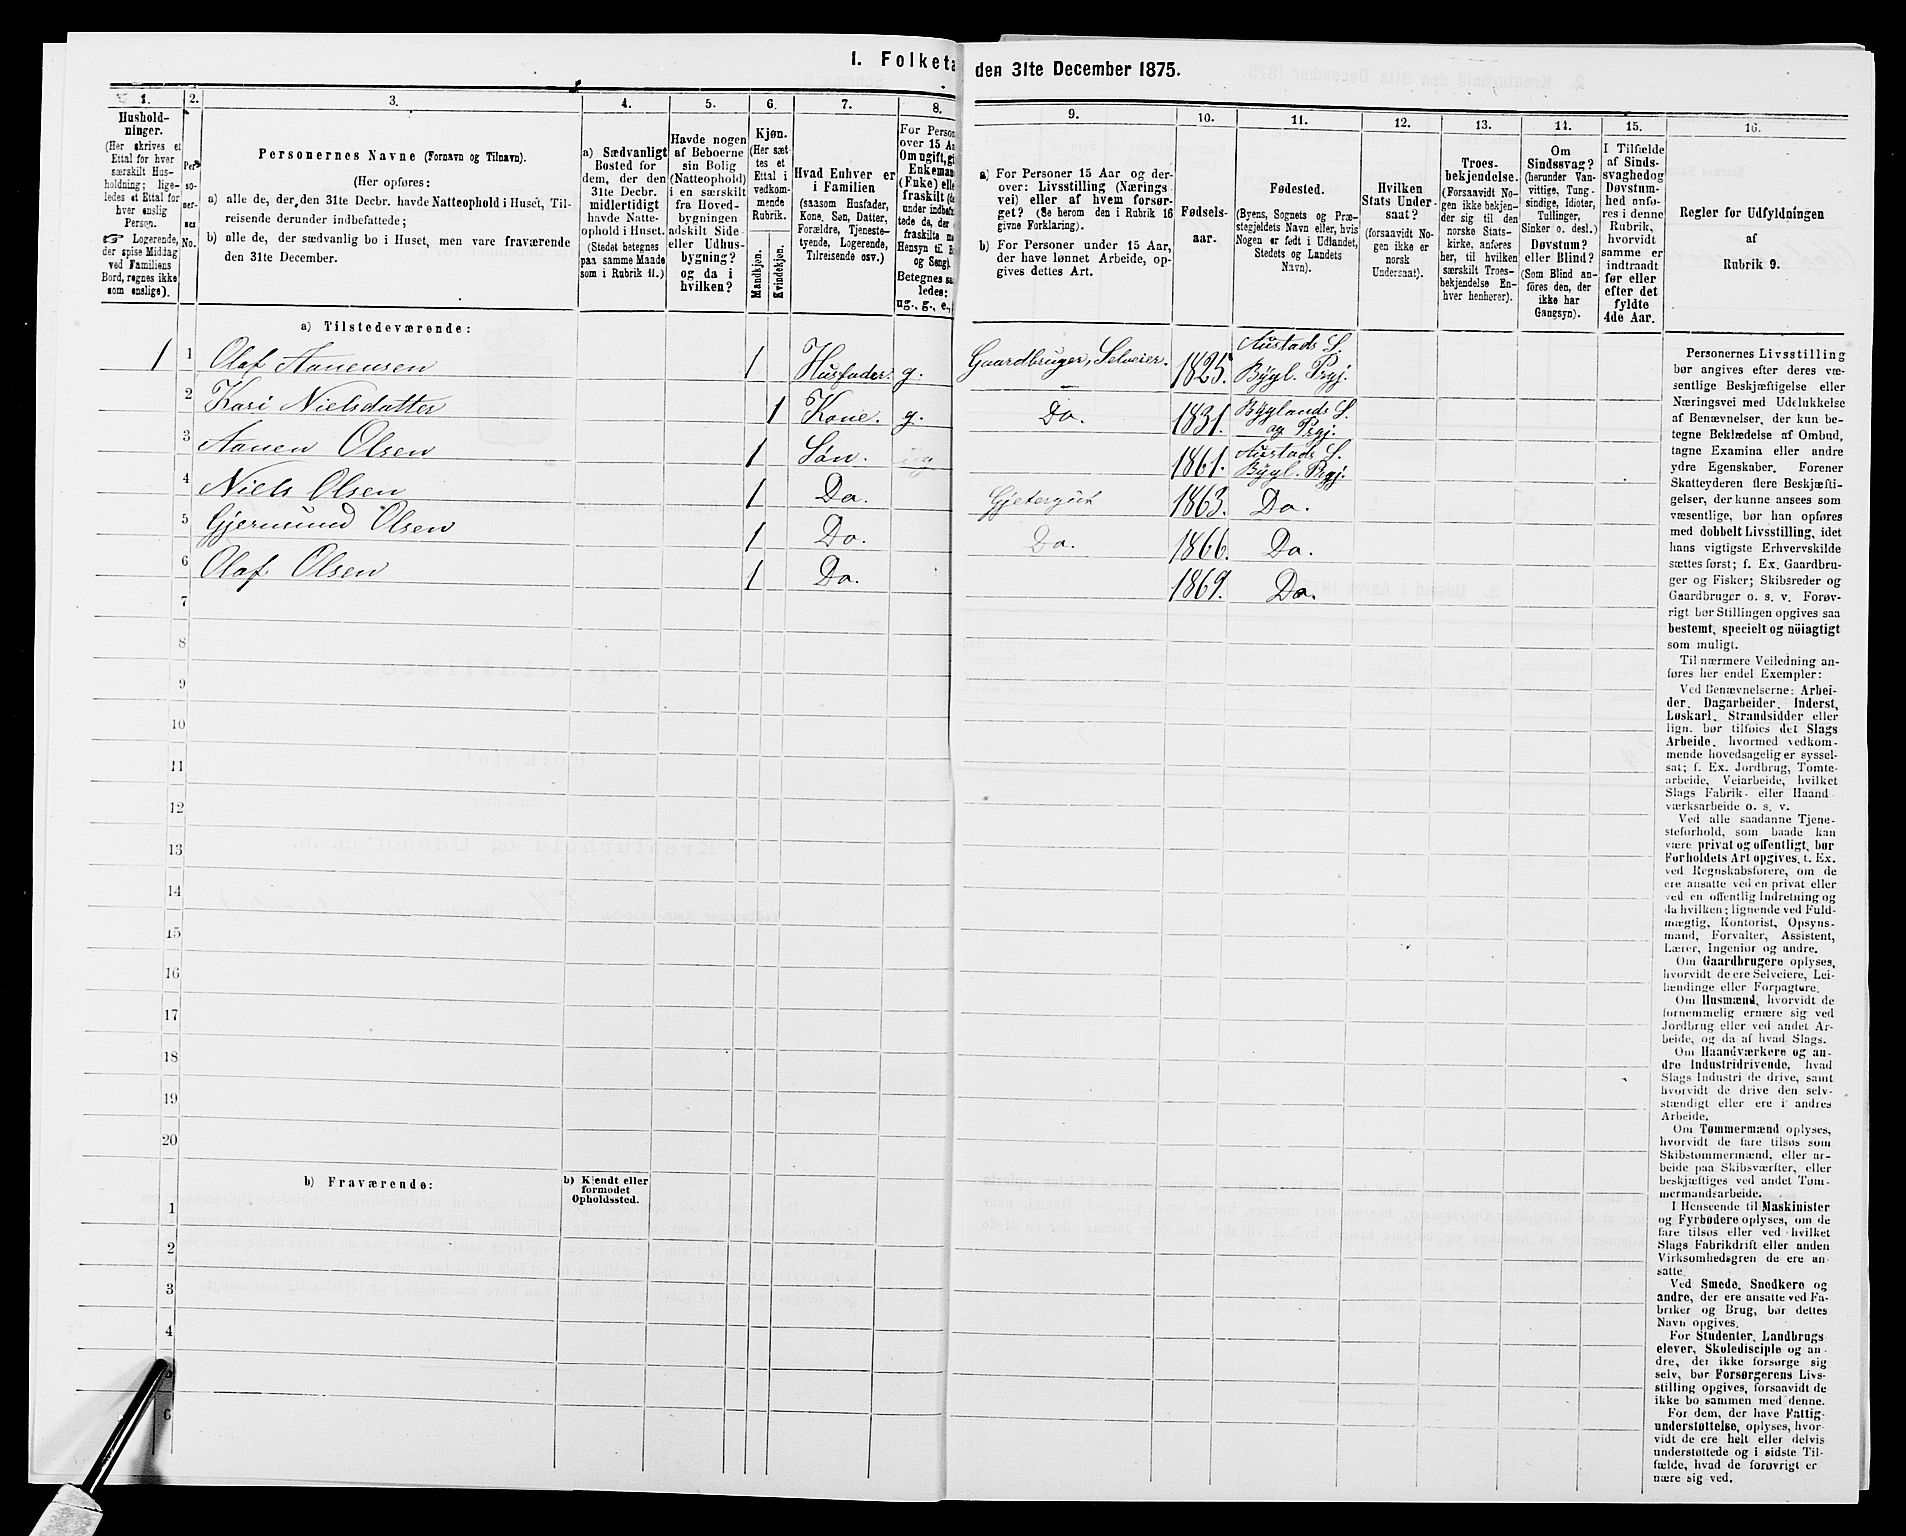 1. Folketa
den 31te December 1875.
1.
2.
3.
4.
5.
6.
7.
8.
9.
10.
11.
12.
13.
14.
15.
16.
Hushold-
ninger.
(Her skrives et
Ettal for hver
særskilt Hus-
holdning; lige-
ledes et Ettal for
hver enslig
Person.
☞ Logerende,
der spise Middag
ved Familiens
Bord, regnes ikke
som enslige).
Per-
so-
ner-
nes
No.
Personernes Navne (Fornavn og Tilnavn).
(Her opføres:
a) alle de, der den 31te Decbr. havde Natteophold i Huset, Til-
reisende derunder indbefattede;
b) alle de, der sædvanlig bo i Huset, men vare fraværende
den 31te December.
a) Sædvanligt
Bosted for
dem, der den
31te Decbr.
midlertidigt
havde Natte-
ophold i Huset.
(Stedet betegnes
paa samme Maade
som i Rubrik 11.)
Havde nogen
af Beboerne
sin Bolig
(Natteophold)
i en særskilt
fra Hoved-
bygningen
adskilt Side-
eller Udhus-
bygning?
og da i
hvilken?
Kjøn.
(Her sæt-
tes et
Ettal i
vedkom-
mende
Rubrik.
Mandkjøn.
Kvindekjøn.
Hvad Enhver er
i Familien
(saasom Husfader,
Kone, Søn, Datter,
Forældre, Tjeneste-
tyende, Logerende,
Tilreisende osv.)
For Person
over 15 Aa
Om ugift, gi
Enkeman
(Enke) elle
fraskilt (de
under indbefa
tede de, der e
fraskilte m
Hensyn til B
og Seng).
Betegnes sa
ledes:
ug., g., e.,
a) For Personer 15 Aar og der-
over: Livsstilling (Nærings-
vei) eller af hvem forsør-
get? (Se herom den i Rubrik 16
givne Forklaring).
b) For Personer under 15 Aar,
der have lønnet Arbeide, op-
gives dettes Art.
Fødsels-
aar.
Fødested.
(Byens, Sognets og Præ-
stegjeldets Navn eller, hvis
Nogen er født i Udlandet,
Stedets og Landets
Navn).
Hvilken
Stats Under-
saat?
(forsaavidt No-
gen ikke er
norsk
Undersaat).
Troes-
bekjendelse.
(Forsaavidt No-
gen ikke bekjen-
der sig til den
norske Stats-
kirke, anføres
her, til hvilken
særskilt Troes-
bekjendelse En-
hver henhører).
Om
Sindssvag?
(herunder Van-
vittige, Tung-
sindige, Idioter,
Tullinger,
Sinker o. desl.)
Døvstum?
eller Blind?
(Som Blind an-
føres den, der
ikke har
Gangsyn).
I Tilfælde
af Sinds-
svaghed og
Døvstum-
hed anfø-
res i denne
Rubrik,
hvorvidt
samme er
indtraadt
før eller
efter det
fyldte
4de Aar.
Regler for Udfyldningen
af
Rubrik 9.
a) Tilstedeværende:
1 1 Olaf Aanensen 1 Husfader. g. Gaardbruger, Selveier. 1825. Austads S. Bygl. Prgj.
2 Kari Nielsdatter 1 Kone. g. Do. 1831. Byglands S. og Prgj.
3 Aanen Olsen 1 Søn. 1861. Austads S. Bygl. Prgj.
4 Niels Olsen 1 Do. Gjetergut 1863. Do.
5 Gjermund Olsen 1 Do. Do. 1866. Do.
6 Olaf Olsen 1 Do. 1869. Do.
7
8
9
10
11
12
13
14
15
16
17
18
19
20
b) Fraværende:
b) Kjendt eller
formodet
Opholdssted.
1
2
3
4
5
6
Personernes Livsstilling
bør angives efter deres væ-
sentlige Beskjæftigelse eller
Næringsvei med Udelukkelse
af Benævnelser, der kun be-
tegne Beklædelse af Ombud,
tagne Examina eller andre
ydre Egenskaber. Forener
Skatteyderen flere Beskjæfti-
gelser, der kunne ansees som
væsentlige, bør han opføres
med dobbelt Livsstilling, idet
hans vigtigste Erhvervskilde
sættes først; f. Ex. Gaardbru-
ger og Fisker; Skibsreder og
Gaardbruger o. s. v. Forøv-
rigt bør Stillingen opgives saa
bestemt, specielt og nöiagtigt
som muligt.
Til nærmere Veiledning an-
føres her endel Exempler:
Ved Benævnelserne: Arbei-
der, Dagarbeider, Inderst,
Løskarl, Strandsidder eller
lign. bør tilføies det Slags
Arbeide, hvormed vedkom-
mende hovedsagelig er syssel-
sat; f. Ex. Jordbrug, Tomte-
arbeide, Veiarbeide, hvilket
Slags Fabrik- eller Haand-
værksarbeide o. s. v.
Ved alle saadanne Tjene-
steforhold, som baade kan
være privat og offentligt, bør
Forholdets Art opgives, t. Ex.
ved Regnskabsførere, om de
ere ansatte ved en privat eller
ved en offentlig Indretning og
da hvilken; lignende ved Fuld-
mægtig, Kontorist, Opsyns-
mand, Forvalter, Assistent,
Lærer, Ingeniør og andre.
Om Gaardbrugere oplyses,
hvorvidt de ere Selveiere, Lei-
lændinge eller Forpagtere.
Om Husmænd, hvorvidt de
fornemmelig ernære sig ved
Jordbrug eller ved andet Ar-
beide, og da af hvad Slags.
Om Haandværkere og an-
dre Industridrivende, hvad
Slags Industri de drive, samt
hvorvidt de drive den selv-
stændigt eller ere i andres
Arbeide.
Om Tømmermænd oplyses,
hvorvidt de fare tilsøs som
Skibstømmermænd, eller ar-
beide paa Skibsværfter, eller
beskjæftiges ved andet Tøm-
mermandsarbeide.
I Henseende til Maskinister
og Fyrbødere oplyses, om de
fare tilsøs eller ved hvilket
Slags Fabrikdrift eller anden
Virksomhedsgren de ere an-
satte.
Ved Smede, Snedkere og
andre, der ere ansatte ved Fa-
briker og Brug, bør dettes
Navn opgives.
For Studenter, Landbrugs-
elever, Skoledisciple og an-
dre, der ikke forsørge sig
selv, bør Forsørgerens Livs-
stilling opgives, forsaavidt de
ikke bo sammen med denne.
For dem, der have Fattig-
understøttelse, oplyses, hvor-
vidt de ere helt eller delvis
understøttede og i sidste Til-
fælde, hvad de forøvrigt er-
nære sig ved.